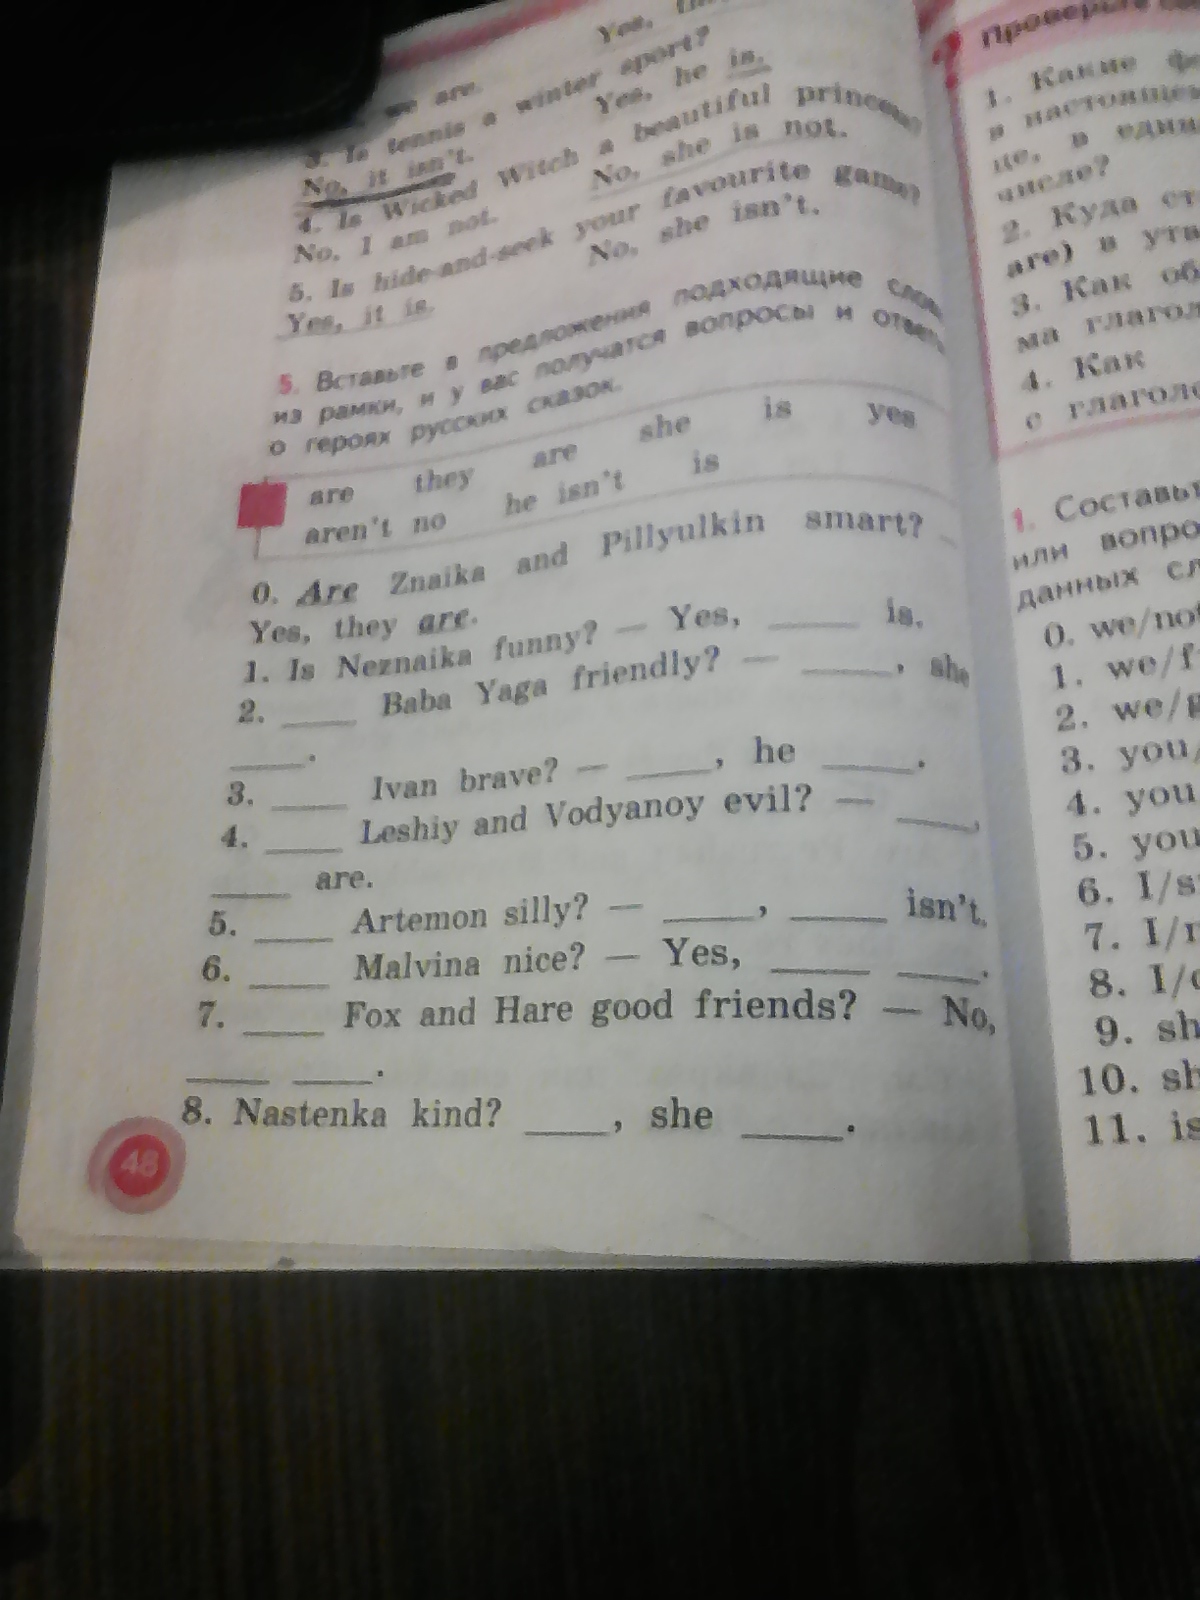 Yes,
we are.
3. Is tennis a winter sport?
No, it isn't. Yes, he is.
4. Is Wicked Witch a beautiful princess?
No, I am not. No, she is not.
5. Is hide-and-seek your favourite game?
Yes, it is. No, she isn't.
5. Вставьте в предложения подходящие слова
из рамки, и у вас получатся вопросы и ответы
о героях русских сказок.
are they are she is yes
aren't no he isn't is
0. Are Znaika and Pillyulkin smart? –
Yes, they are.
1. Is Neznaika funny? — Yes, _____ is.
2. ____ Baba Yaga friendly? — _____, she
____.
3. ____ Ivan brave? — _____, he _____.
4. ____ Leshiy and Vodyanoy evil? — ____,
____ are.
5. ____ Artemon silly? — _____, _____ isn't.
6. ____ Malvina nice? — Yes, _____ ____.
7. ____ Fox and Hare good friends? — No,
____ ____.
8. Nastenka kind? ____, she _____.
48
Проверьте
1. Какие
в настоящем
це, в
числе?
2. Куда
are) в
3. Как
ма
4. Как
с
1. Составьте
или
данных
0. we/not
1. we/
2. we/
3. you/
4. you
5. you
6. I/
7. I/
8. I/
9. sh
10. sh
11. is